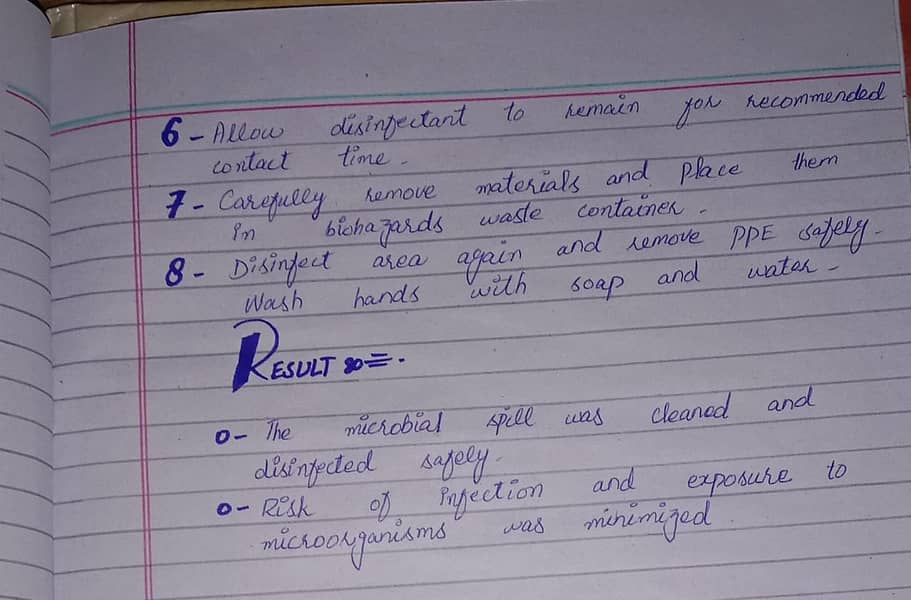 6- Allow disinfectant to remain for recommended
contact time.
7- Carefully remove materials and place them
in biohazards waste container.
8- Disinfect area again and remove PPE safely.
Wash hands with soap and water.
RESULT :-
o- The microbial spill was cleaned and
disinfected safely.
o- Risk of infection and exposure to
microorganisms was minimized